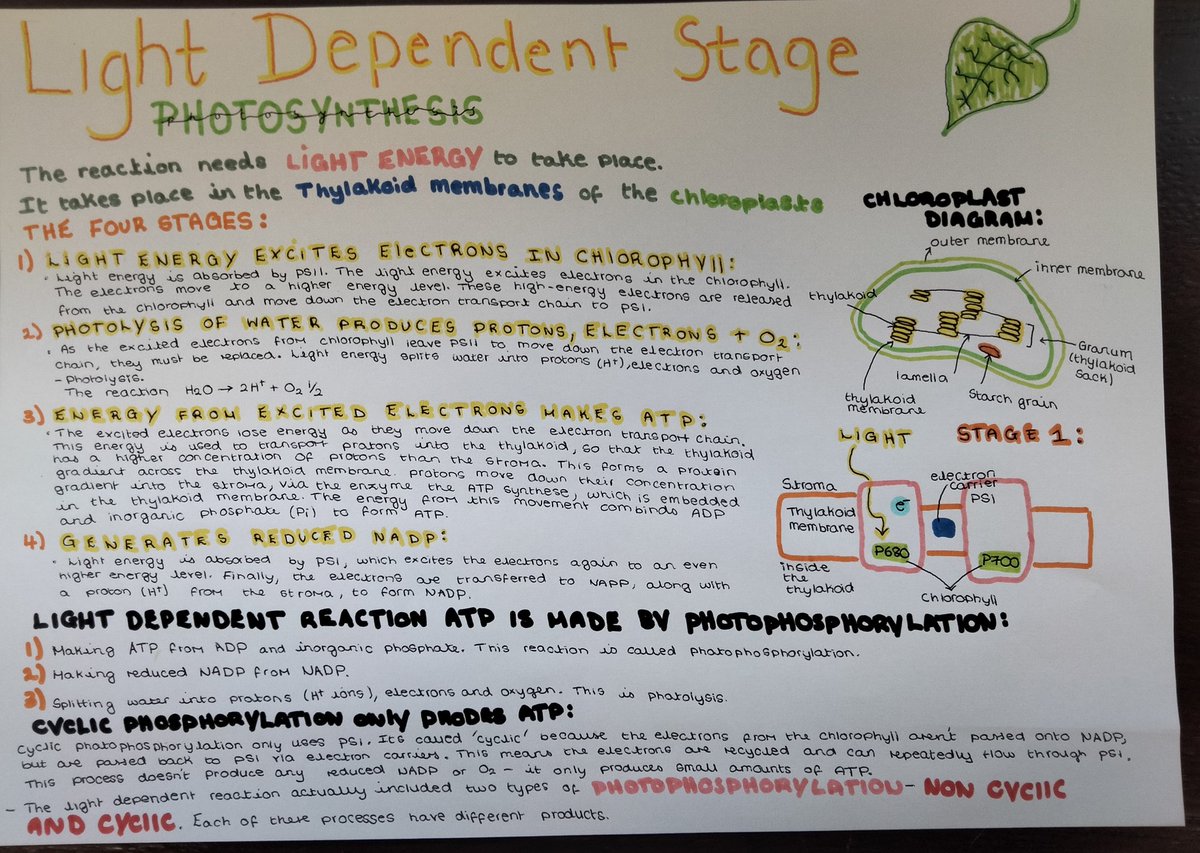 Light Dependent Stage
PHOTOSYNTHESIS
The reaction needs LIGHT ENERGY to take place.
It takes place in the Thylakoid membranes of the chloroplasts
THE FOUR STAGES:
1) LIGHT ENERGY EXCITES ElECTRONS IN CHlOROPHYll:
• Light energy is absorbed by PSII. The light energy excites electrons in the chlorophyll.
The electrons move to a higher energy level. These high-energy electrons are released
from the chlorophyll and move down the electron transport chain to PSI.
2) PHOTOLYSIS OF WATER PRODUCES PROTONS, ELECTRONS + O2:
• As the excited electrons from chlorophyll leave PSII to move down the electron transport
chain, they must be replaced. Light energy splits water into protons (H+), electrons and oxygen
- Photolysis.
The reaction H2O → 2H+ + O2 1/2
3) ENERGY FROM EXCITED ELECTRONS MAKES ATP:
• The excited electrons lose energy as they move down the electron transport chain.
This energy is used to transport protons into the thylakoid, so that the thylakoid
has a higher concentration of protons than the stroma. This forms a protein
gradient across the thylakoid membrane. protons move down their concentration
gradient into the stroma, via the enzyme the ATP synthese, which is embedded
in the thylakoid membrane. The energy from this movement combinds ADP
and inorganic phosphate (Pi) to form ATP.
4) GENERATES REDUCED NADP:
• Light energy is absorbed by PSI, which excites the electrons again to an even
higher energy level. Finally, the electrons are transferred to NAPP, along with
a proton (H+) from the stroma, to form NADP.
LIGHT DEPENDENT REACTION ATP IS MADE BY PHOTOPHOSPHORYLATION:
1) Making ATP from ADP and inorganic phosphate. This reaction is called photophosphorylation.
2) Making reduced NADP from NADP.
3) Splitting water into protons (H+ ions), electrons and oxygen. This is photolysis.
CYCLIC PHOSPHORYLATION ONLY PRODES ATP:
Cyclic photophosphorylation only uses PSI. Its called 'cyclic' because the electrons from the chlorophyll aren't passed onto NADP,
but are passed back to PSI via electron carriers. This means the electrons are recycled and can repeatedly flow through PSI.
This process doesn't produce any reduced NADP or O2 – it only produces small amounts of ATP.
- The light dependent reaction actually included two types of PHOTOPHOSPHORYLATION- NON CYCLIC
AND CYCLIC. Each of these processes have different products.
CHLOROPLAST
DIAGRAM:
outer membrane
inner membrane
thylakoid
Granum
(thylakoid
sack)
lamella
starch grain
thylakoid
membrane
LIGHT
STAGE 1:
electron
carrier
Stroma
PSI
Thylakoid
membrane
e-
P680
P700
inside
the
thylakoid
chlorophyll